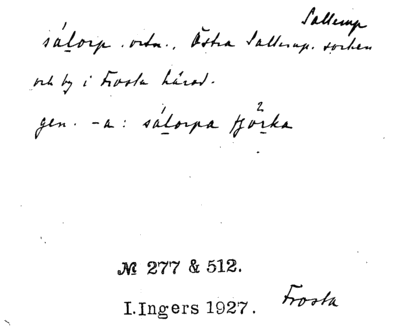 Sallerup
sáḻorp. ortn., Östra Sallerup. socken
och by i Frosta härad.
gen. -a: sáḻorpa fjö́ṟka
2
№ 277 & 512.
I.Ingers 1927. Frosta